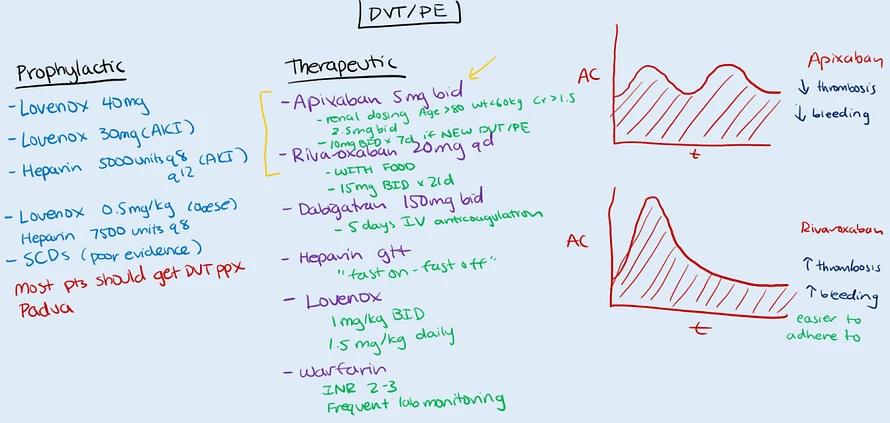 DVT/PE
Prophylactic
- Lovenox 40mg
- Lovenox 30mg (AKI)
- Heparin 5000 units q8 (AKI)
q12
- Lovenox 0.5mg/kg (obese)
Heparin 7500 units q8
- SCDs (poor evidence)
most pts should get DVT ppx
Padua
Therapeutic
- Apixaban 5mg bid
- renal dosing Age >80 wt<60kg Cr >1.5
2.5mg bid
- 10mg BID x 7d if NEW DVT/PE
- Rivaroxaban 20mg qd
- WITH FOOD
- 15mg BID x 21d
- Dabigatran 150mg bid
- 5 days IV anticoagulation
- Heparin gtt
"fast on - fast off"
- Lovenox
1mg/kg BID
1.5 mg/kg daily
- warfarin
INR 2-3
Frequent lab monitoring
AC
t
Apixaban
↓ thrombosis
↓ bleeding
AC
t
Rivaroxaban
↑ thrombosis
↑ bleeding
easier to
adhere to